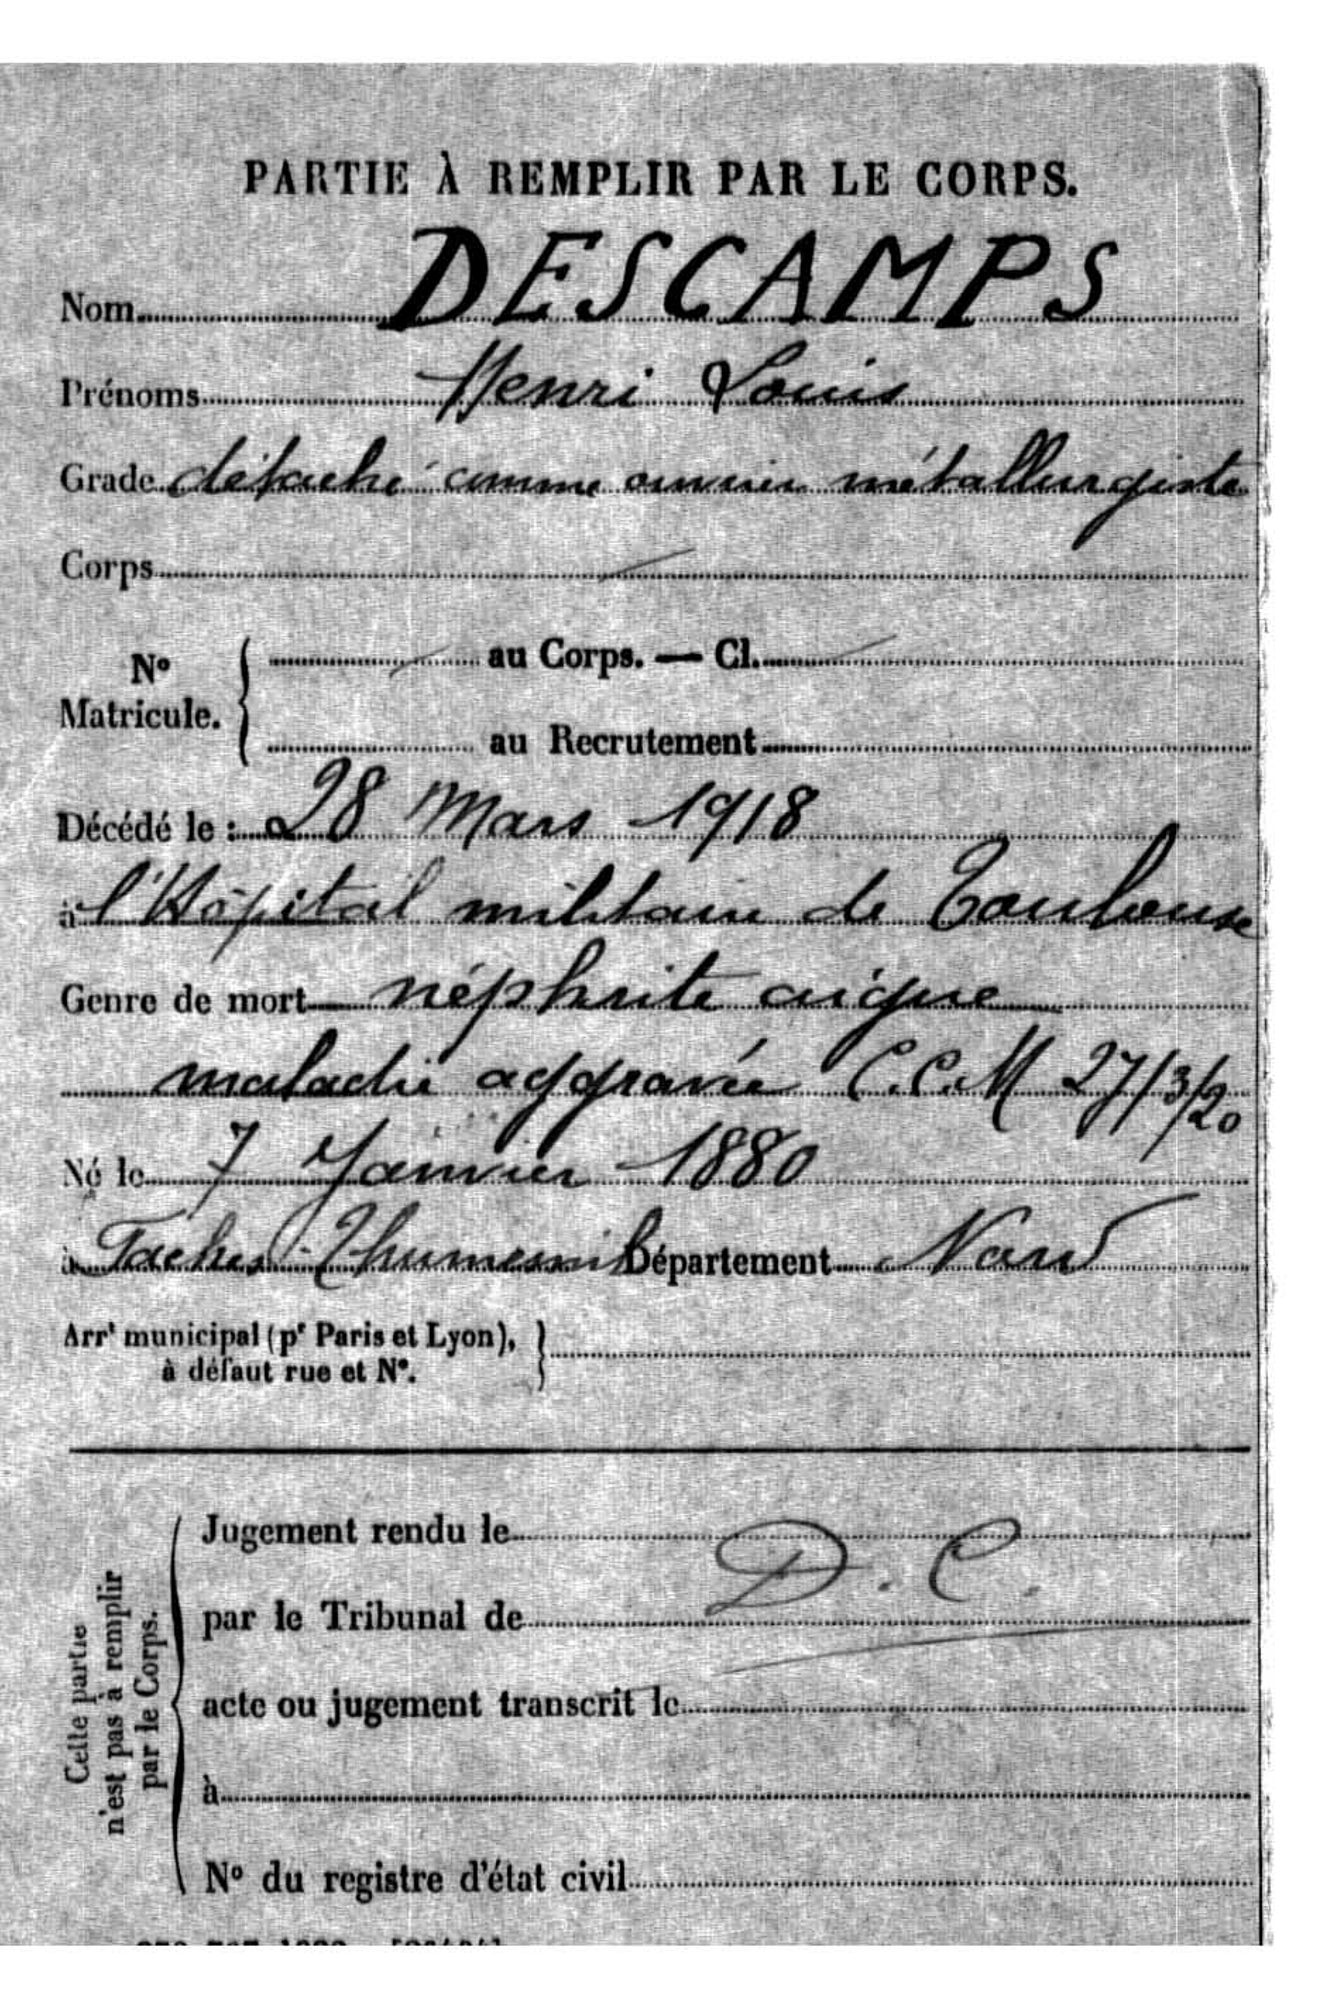 PARTIE À REMPLIR PAR LE CORPS.
Nom DESCAMPS
Prénoms Henri Louis
Grade détaché comme ouvrier métallurgiste
Corps
N° Matricule. au Corps. — Cl.
au Recrutement
Décédé le : 28 Mars 1918
à l'Hôpital militaire de Toulouse
Genre de mort néphrite aigue
maladie aggravée C.C.M 27/3/20
Né le 7 Janvier 1880
à Faches-Thumesnil Département Nord
Arrt municipal (pr Paris et Lyon),
à défaut rue et N°.
Cette partie
n'est pas à remplir
par le Corps.
Jugement rendu le
D. C.
par le Tribunal de
acte ou jugement transcrit le
à
N° du registre d'état civil